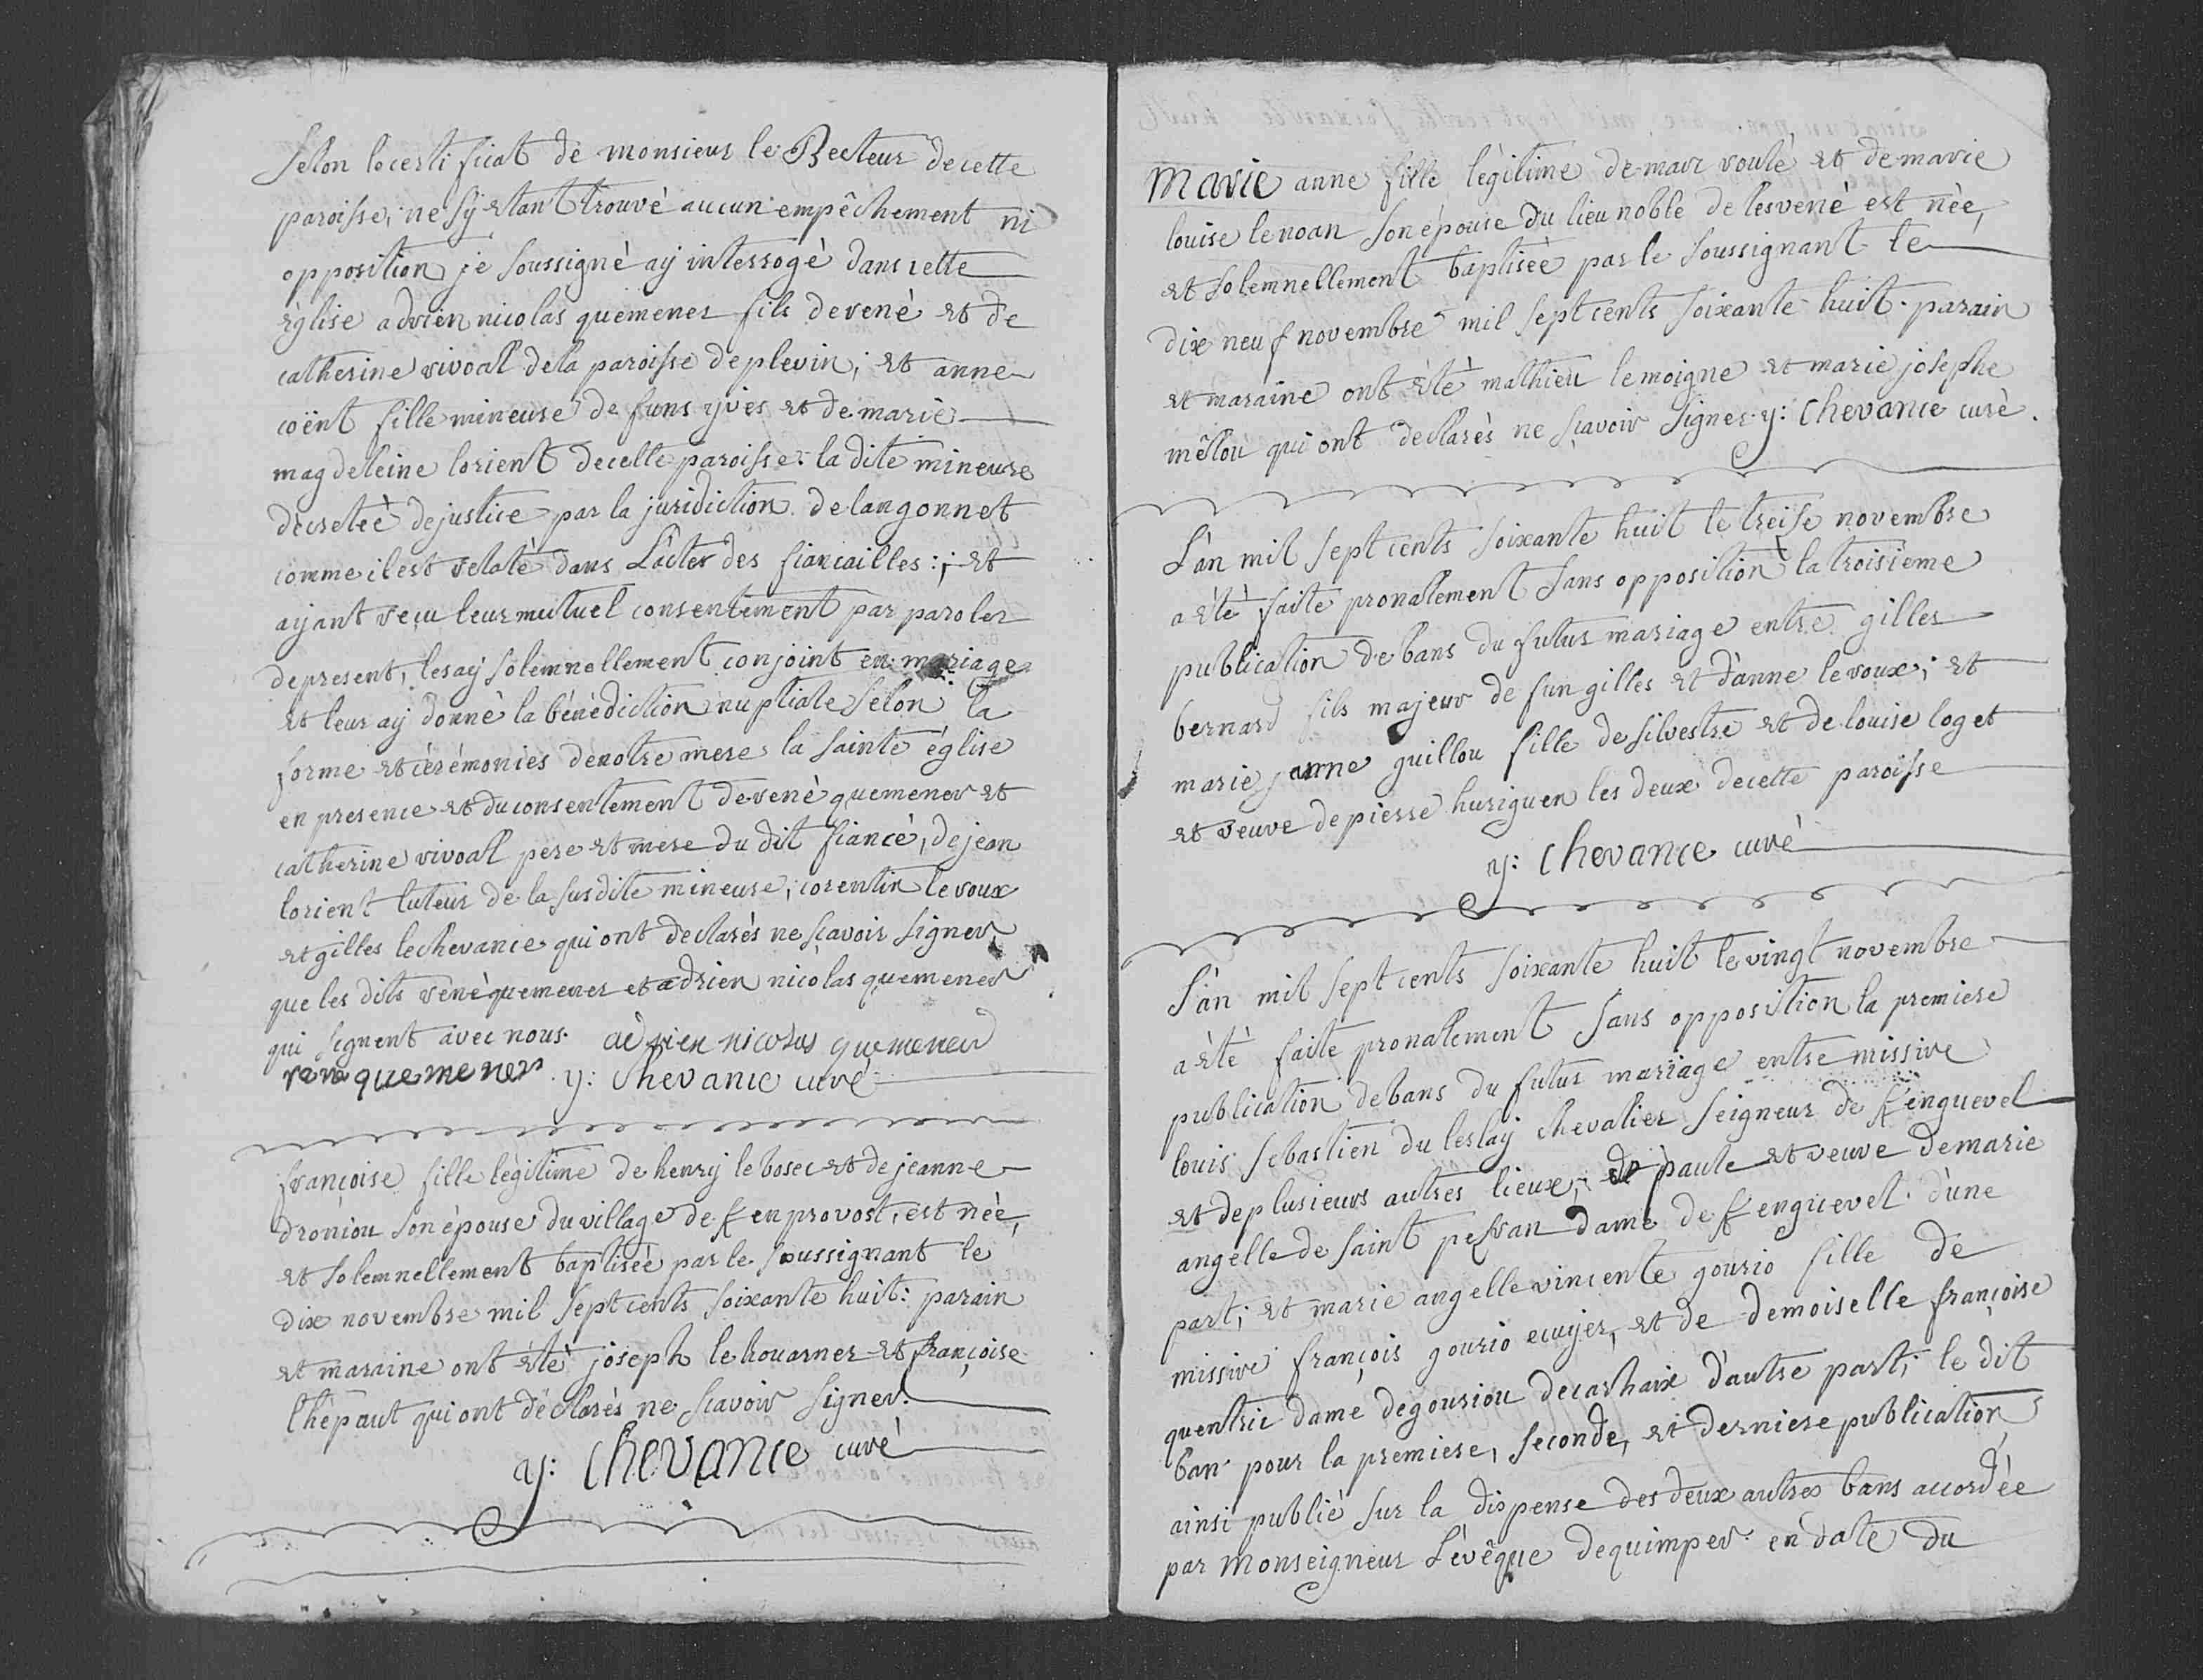 selon le certificat de monsieur le Recteur de cette
paroisse, ne s'y etant trouvé aucun empêchement ni
opposition je soussigné ay interrogé dans cette
église adrien nicolas quemener fils de rené et de
catherine rivoal de la paroisse de plevin; et anne
coënt fille mineure de funs yves et de marie
magdeleine lorient de cette paroisse. la dite mineure
decretée de justice par la juridiction de langonnet
comme il est relaté dans L'acter des fiancailles:; et
ayant reçu leur mutuel consentement par paroles
de present, les ay solemnellement conjoint en mariage
et leur ay donné la bénédiction nuptiale selon la
forme et cérémonies de notre mere la sainte église
en presence et du consentement de rené quemener et
catherine rivoal pere et mere du dit fiancé, de jean
lorient tuteur de la susdite mineure, corentin le roux
et gilles le chevance qui ont declarés ne sçavoir signer
que les dits rené quemener et adrien nicolas quemener
qui signent avec nous. adrien nicolas quemener
rene quemener y: Chevance curé
françoise fille légitime de henry le bosec et de jeanne
droniou son épouse du village de Kenprovost, est née,
et solemnellement baptisée par le soussignant le
dix novembre mil sept cents soixante huit: parain
et maraine ont été joseph le houarner et françoise
thépaut qui ont déclarés ne scavoir signer.
y: Chevance curé
Marie anne fille légitime de marc roulé et de marie
louise le noan son épouse du lieu noble de lesvené est née,
et solemnellement baptisée par le soussignant le
dix neuf novembre mil sept cents soixante huit. parain
et maraine ont été mathieu le moigne et marie josephe
mêlou qui ont declarés ne sçavoir signer y: Chevance curé.
L'an mil sept cents soixante huit le treise novembre
a été faite pronalement sans opposition la troisieme
publication de bans du futur mariage entre gilles
bernard fils majeur de fun gilles et d'anne le roux; et
marie janne guillou fille de silvestre et de louise loget
et veuve de pierre huriguen les deux de cette paroisse
y: Chevance curé
L'an mil sept cents soixante huit le vingt novembre
a été faite pronalement sans opposition la premiere
publication de bans du futur mariage entre missire
louis sebastien du leslay chevalier seigneur de Kenguevel
et de plusieurs autres lieux, de paule et veuve de marie
angelle de saint pesran dame de Kenguevel. d'une
part; et marie angelle vincente gourio fille de
missire françois gourio ecuyer, et de demoiselle françoise
quentric dame de gouriou de carhaix d'autre part, le dit
ban pour la premiere, seconde, et derniere publication
ainsi publié sur la dispense des deux autres bans accordée
par Monseigneur L'evêque de quimper en date du